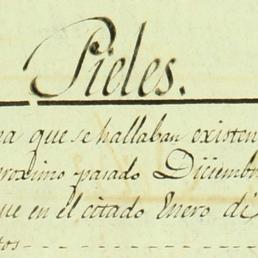 Pieles.
na que se hallaban existen
proximo pasado Diciembr
ue en el citado Enero di
tos